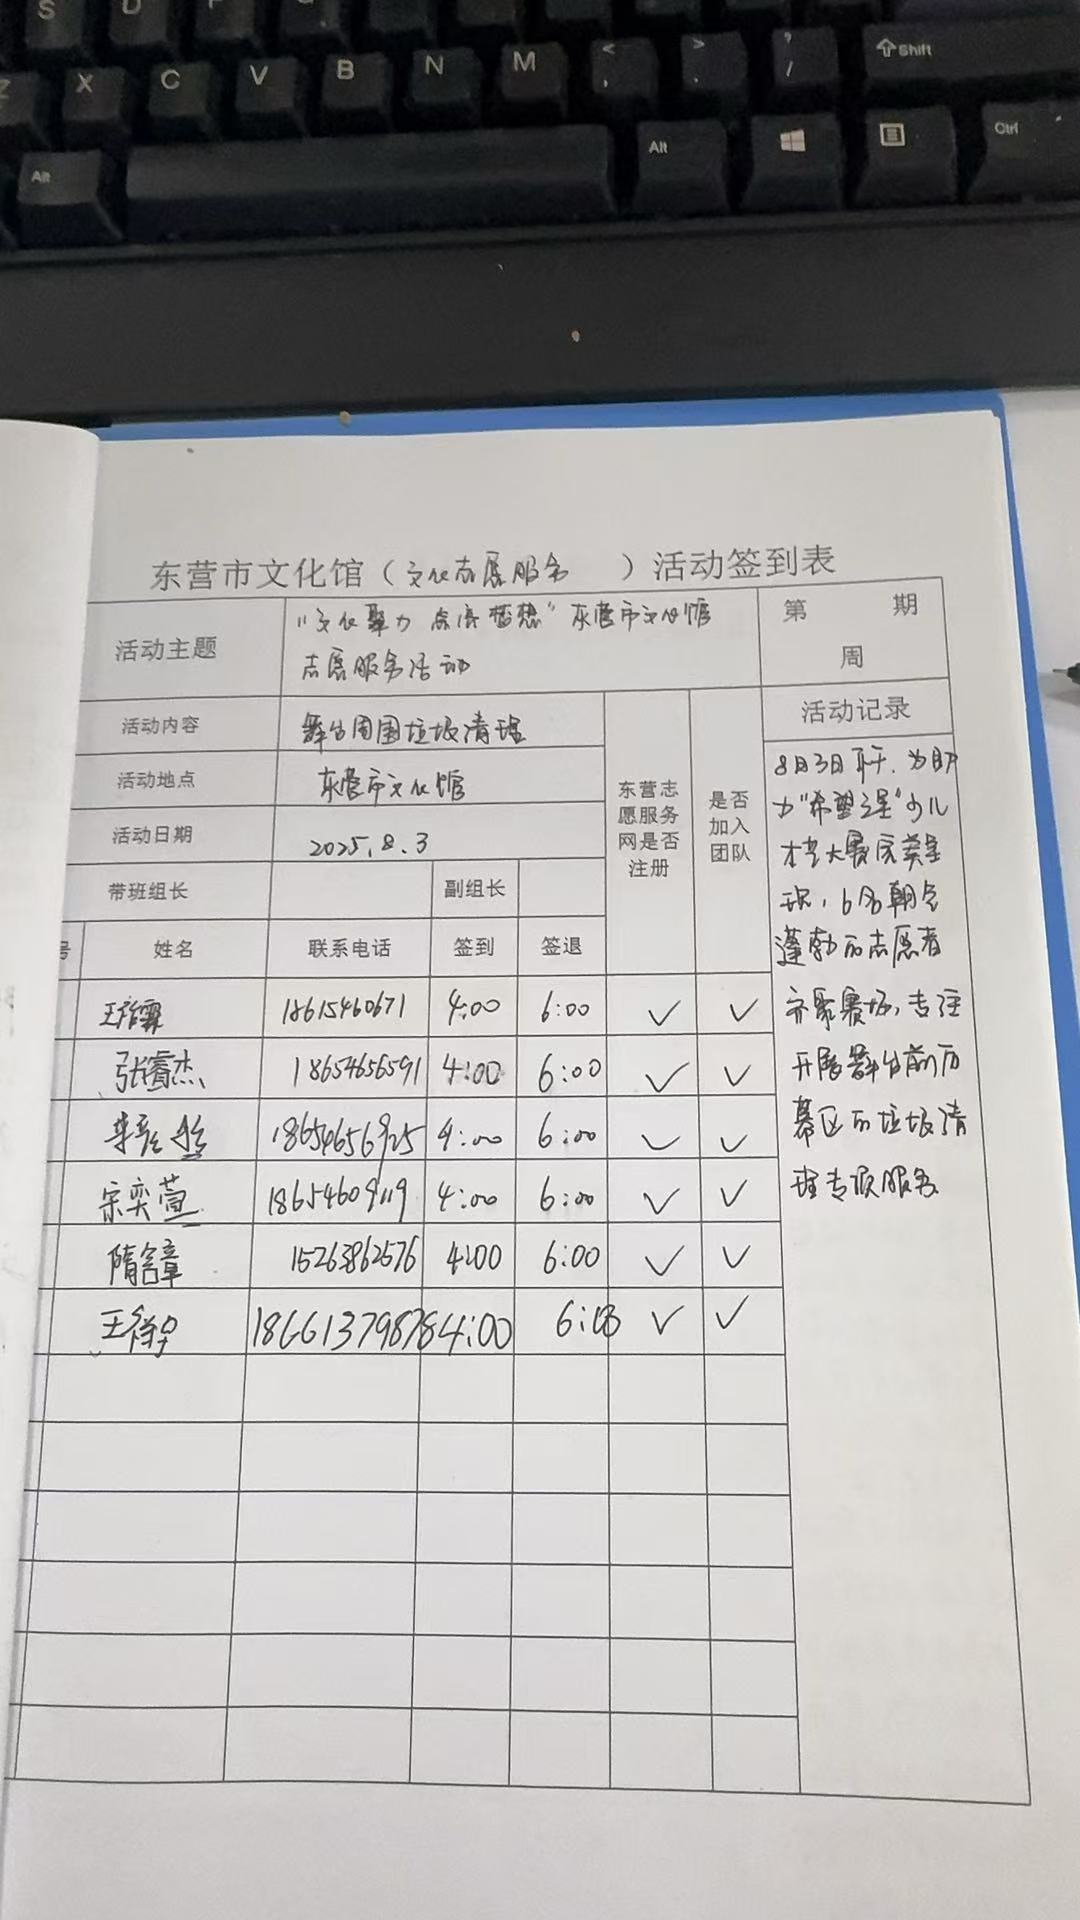 S D F
Z X C V B N M < , > . ? / Shift
Alt Alt Ctrl
东营市文化馆（文化志愿服务）活动签到表
活动主题
"文化聚力 点亮梦想"东营市文化馆
志愿服务活动
第 期
周
活动内容
舞台周围垃圾清理
活动地点
东营市文化馆
活动日期
2025.8.3
带班组长 副组长
东营志
愿服务
网是否
注册
是否
加入
团队
活动记录
8月3日下午，为助
力"希望之星"少儿
才艺大赛完美呈
现，6名朝气
蓬勃的志愿者
齐聚赛场，专注
开展舞台前后
幕区的垃圾清
理专项服务
号 姓名 联系电话 签到 签退
18615460671 4:00 6:00 ✓ ✓
张睿杰 18654656591 4:00 6:00 ✓ ✓
18654656925 4:00 6:00 ✓ ✓
宋奕萱 18654609119 4:00 6:00 ✓ ✓
15263862576 4:00 6:00 ✓ ✓
18661379878 4:00 ✓ ✓